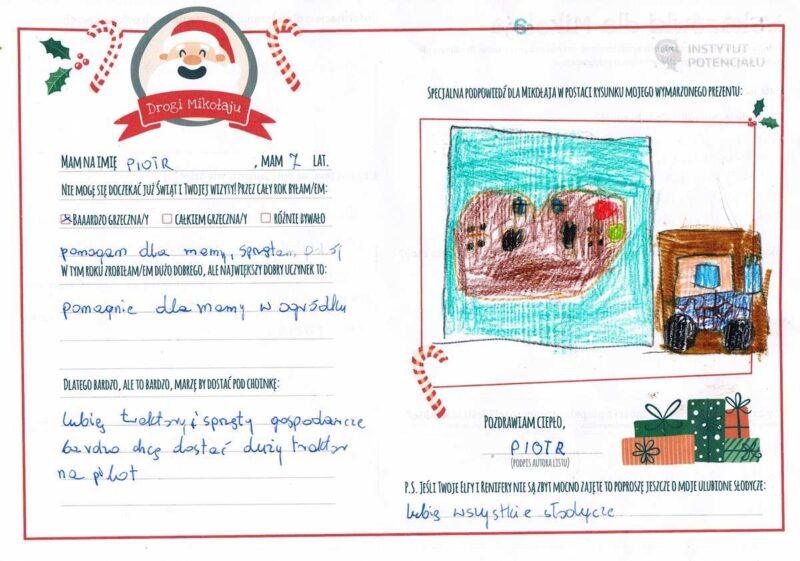 INSTYTUT
POTENCJAŁU
Drogi Mikołaju
MAM NA IMIĘ PIOTR, MAM 7 LAT.
NIE MOGĘ SIĘ DOCZEKAĆ JUŻ ŚWIĄT I TWOJEJ WIZYTY! PRZEZ CAŁY ROK BYŁAM/EM:
BAAARDZO GRZECZNA/Y CAŁKIEM GRZECZNA/Y RÓŻNIE BYWAŁO
pomagam dla mamy, sprzątam
W TYM ROKU ZROBIŁAM/EM DUŻO DOBREGO, ALE NAJWIĘKSZY DOBRY UCZYNEK TO:
pomagnie dla mamy w ogródku
DLATEGO BARDZO, ALE TO BARDZO, MARZĘ BY DOSTAĆ POD CHOINKĘ:
lubię traktory i sprzęty gospodarcze
bardzo chcę dostać duży traktor
na pilot
SPECJALNA PODPOWIEDŹ DLA MIKOŁAJA W POSTACI RYSUNKU MOJEGO WYMARZONEGO PREZENTU:
POZDRAWIAM CIEPŁO,
PIOTR
(PODPIS AUTORA LISTU)
P.S. JEŚLI TWOJE ELFY I RENIFERY NIE SĄ ZBYT MOCNO ZAJĘTE TO POPROSZĘ JESZCZE O MOJE ULUBIONE SŁODYCZE:
lubię wszystkie słodycze